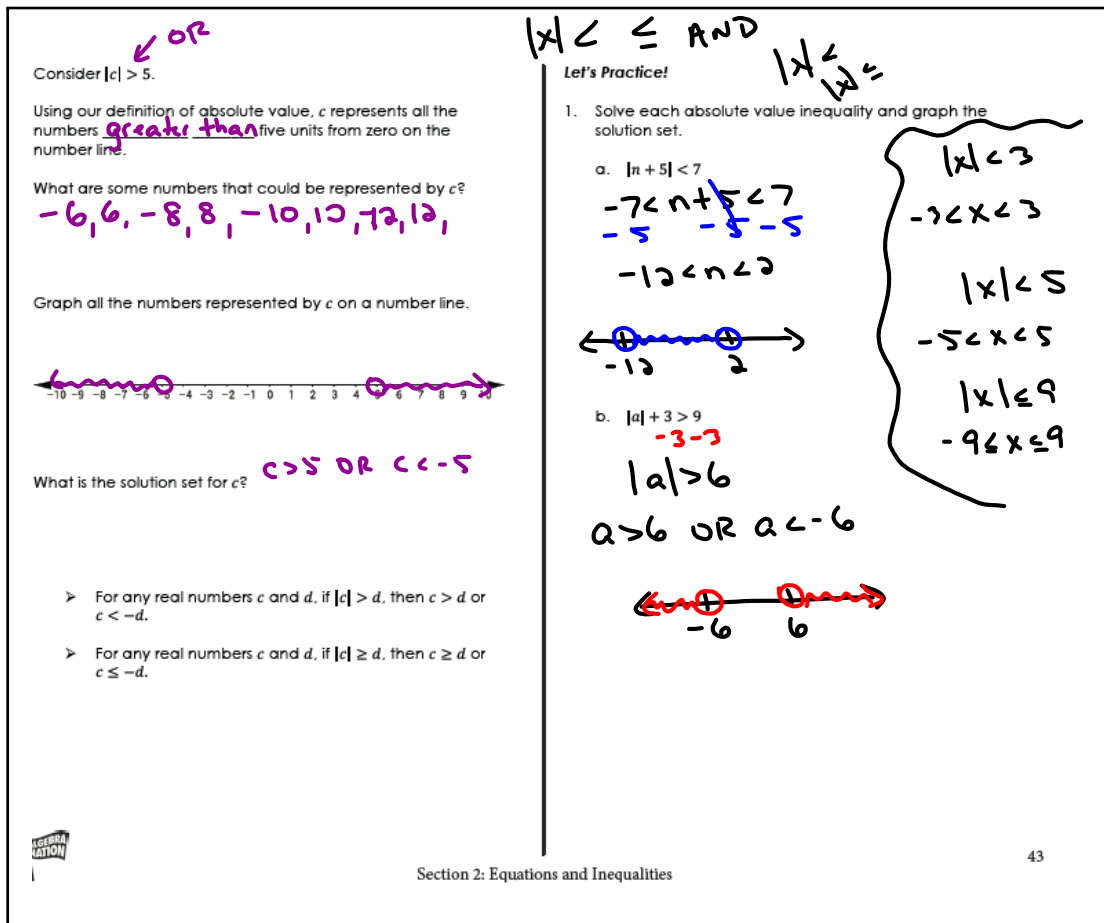 OR
Consider |c| > 5.
Using our definition of absolute value, c represents all the
numbers greater than five units from zero on the
number line.
What are some numbers that could be represented by c?
-6, 6, -8, 8, -10, 10, -12, 12,
Graph all the numbers represented by c on a number line.
-10 -9 -8 -7 -6 -5 -4 -3 -2 -1 0 1 2 3 4 5 6 7 8 9 10
What is the solution set for c? c>5 OR c<-5
➢ For any real numbers c and d, if |c| > d, then c > d or
c < −d.
➢ For any real numbers c and d, if |c| ≥ d, then c ≥ d or
c ≤ −d.
|x| < ≤ AND
|x| <
|x| ≤
Let's Practice!
1. Solve each absolute value inequality and graph the
solution set.
a. |n + 5| < 7
-7 < n+5 < 7
-5 -5 -5
-12 < n < 2
-12 2
b. |a| + 3 > 9
-3 -3
|a| > 6
a>6 OR a<-6
-6 6
|x| < 3
-3 < x < 3
|x| < 5
-5 < x < 5
|x| ≤ 9
-9 ≤ x ≤ 9
ALGEBRA
NATION
Section 2: Equations and Inequalities
43